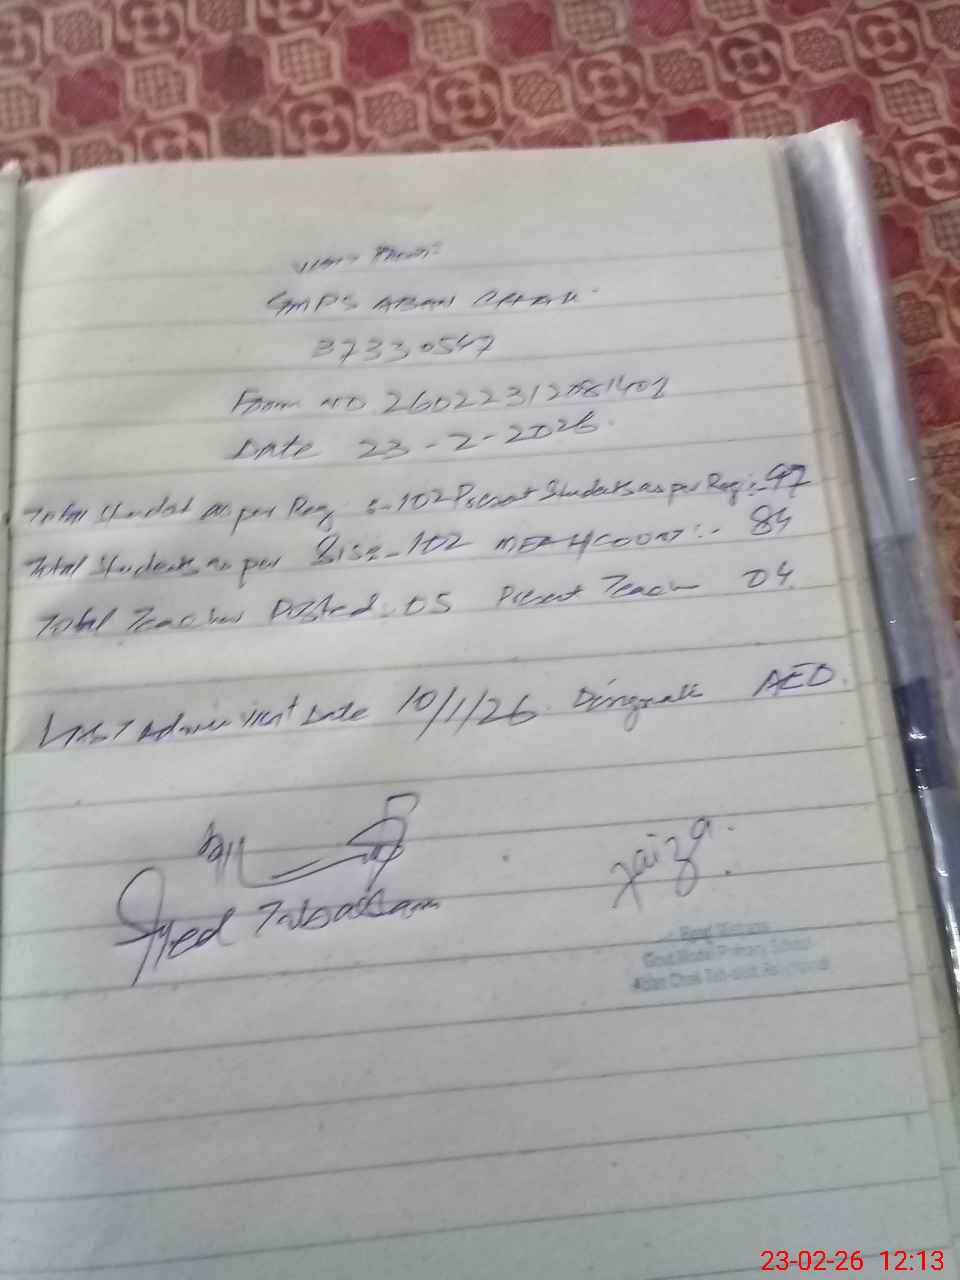 Visit Proof:
GMPS ABAN CHAK.
37330547
Form NO 26022312081401
Date 23-2-2026.
Total Student as per Reg :-102 Present Students as per Reg :- 97
Total Students as per SISE-102 MEA H/COUNT:- 84
Total Teacher Posted: 05 Present Teacher 04
Last Date 10/1/26. AEO.
Syed Tabassam
Faiza.
Head
Govt. Model Primary School
Aban Chak
23-02-26 12:13